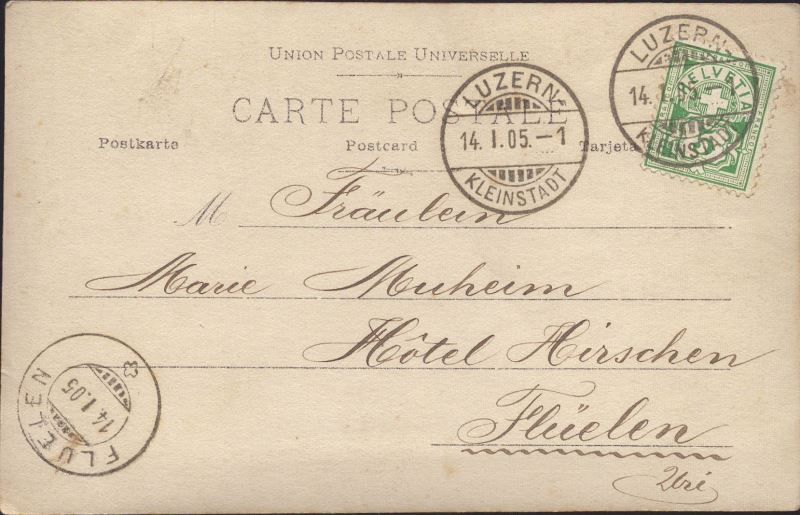 UNION POSTALE UNIVERSELLE
CARTE POSTALE
Postkarte Postcard Tarjeta
LUZERN
14. I. 05. - 1
KLEINSTADT
LUZERN
14.
KLEINSTADT
HELVETIA
FRANCO
5
M Fräulein
Marie Muheim
Hôtel Hirschen
Flüelen
Uri
FLUELEN
14. I. 05